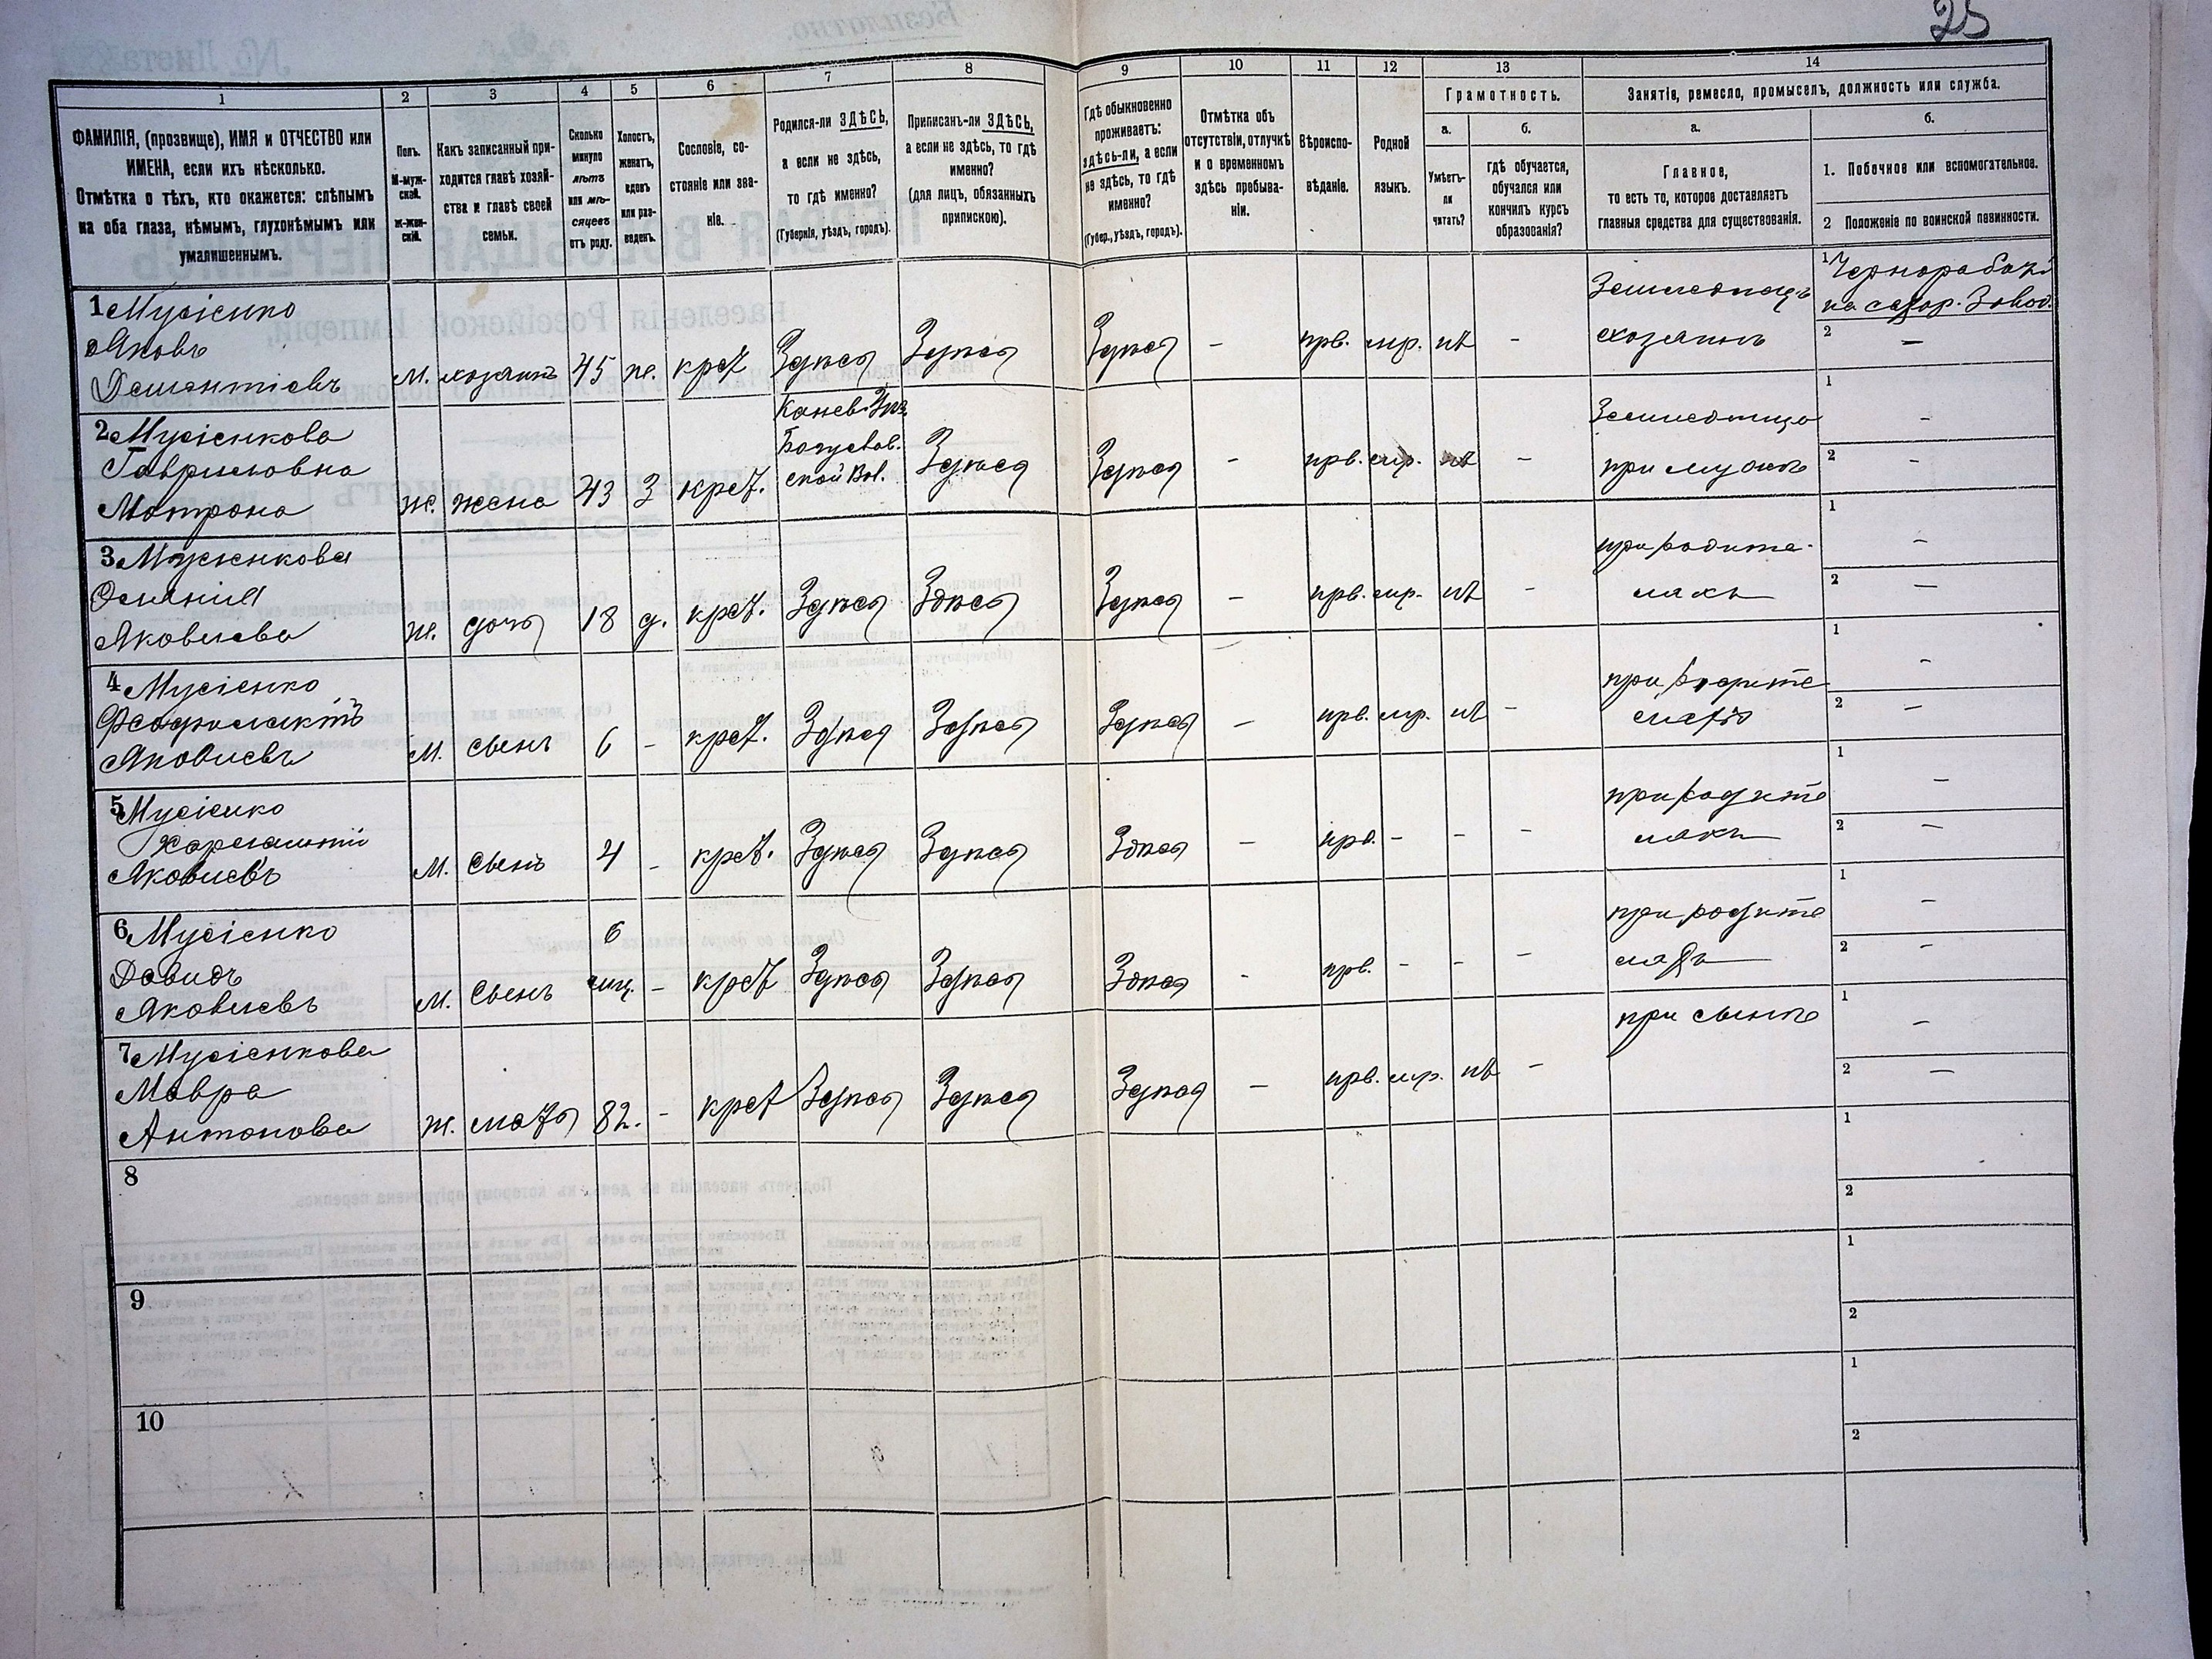 25
1 2 3 4 5 6 7 8 9 10 11 12 13 14
ФАМИЛІЯ, (прозвище), ИМЯ и ОТЧЕСТВО или
ИМЕНА, если ихъ нѣсколько.
Отмѣтка о тѣхъ, кто окажется: слѣпымъ
на оба глаза, нѣмымъ, глухонѣмымъ или
умалишеннымъ.
Полъ.
М-муж-
ской.
Ж-жен-
скій.
Какъ записанный при-
ходится главѣ хозяй-
ства и главѣ своей
семьи.
Сколько
минуло
лѣтъ
или мѣ-
сяцевъ
отъ роду.
Холостъ,
женатъ,
вдовъ
или раз-
веденъ.
Сословіе, со-
стояніе или зва-
ніе.
Родился-ли ЗДѢСЬ,
а если не здѣсь,
то гдѣ именно?
(Губернія, уѣздъ, городъ).
Приписанъ-ли ЗДѢСЬ,
а если не здѣсь, то гдѣ
именно?
(для лицъ, обязанныхъ
припискою).
Гдѣ обыкновенно
проживаетъ:
здѣсь-ли, а если
не здѣсь, то гдѣ
именно?
(Губер., уѣздъ, городъ).
Отмѣтка объ
отсутствіи, отлучкѣ
и о временномъ
здѣсь пребыва-
ніи.
Вѣроиспо-
вѣданіе.
Родной
языкъ.
Грамотность.
а.
Умѣетъ-
ли
читать?
б.
гдѣ обучается,
обучался или
кончилъ курсъ
образованія?
Занятіе, ремесло, промыселъ, должность или служба.
а.
Главное,
то есть то, которое доставляетъ
главныя средства для существованія.
б.
1. Побочное или вспомогательное.
2 Положеніе по воинской повинности.
1 Мусіенко
Яковъ
Дементіевъ
м. хозяинъ 45 ж. крест Здѣсь Здѣсь Здѣсь - прв. мр. нѣ -
Земледѣлецъ
хозяинъ
1 Чернорабочі
на сахар. Завод.
2 -
2 Мусіенкова
Гавриловна
Матрона
ж. жена 43 З крест.
Канев. Уѣз.
Богуслав.
ской Вол.
Здѣсь Здѣсь - прв. мр. нѣ -
Земледѣлица
при мужѣ
1 -
2 -
3 Мусіенкова
Яковлева
ж. дочь 18 д. крест. Здѣсь Здѣсь Здѣсь - прв. мр. нѣ -
при родите-
ляхъ
1 -
2 -
4 Мусіенко
Феофилактъ
Яковлевъ
м. сынъ 6 - крест. Здѣсь Здѣсь Здѣсь - прв. мр. нѣ -
при родите
ляхъ
1 -
2 -
5 Мусіенко
Харлампій
Яковлевъ
м. Сынъ 4 - крест. Здѣсь Здѣсь Здѣсь - прв. - - -
при родите
ляхъ
1 -
2 -
6 Мусіенко
Давидъ
Яковлевъ
м. Сынъ 6 мц. - крест Здѣсь Здѣсь Здѣсь - прв. - - -
при родите
ляхъ
1 -
2 -
7 Мусіенкова
Мавра
Антонова
ж. мать 82. - крест Здѣсь Здѣсь Здѣсь - прв. мр. нѣ -
при сынѣ
1 -
2 -
8
1
2
9
1
2
10
1
2